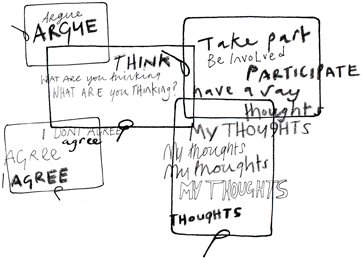 Argue
ARGUE
THINK
WHAT ARE you thinking
WHAT ARE you THINKING?
Take part
Be Involved
PARTICIPATE
have a say
thoughts
MY THOUGHTS
My thoughts
My thoughts
MY THOUGHTS
THOUGHTS
I DONT AGREE
agree
AGREE
I AGREE